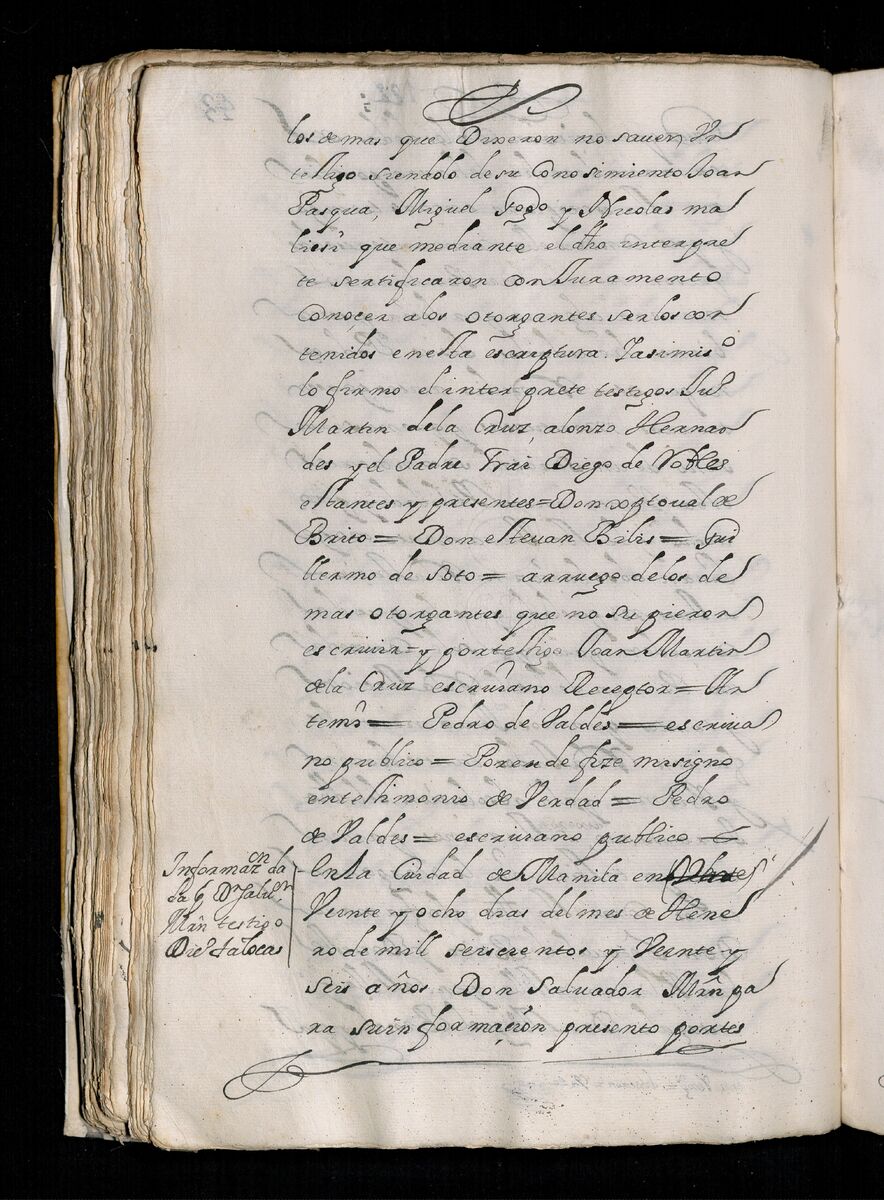 los demas que Dixeron no sauer, Un
testigo siendolo de su Conosimiento Joan
Pasqua, Miguel Gogo y Nicolas ma
liesi que mediante el dho interpre
te sertificaron con Juramento
Conoçer a los otorgantes ser los con
tenidos en esta escriptura. Jasimis o
lo firmo el interprete testigos Juº
Martin de la Cruz, alonzo Hernan
des y el Padre Frai Diego de Robles
estantes y presentes = Don xptoual de
Brito = Don esteuan Bilis = Gui
llermo de Soto = arruego de los de
mas otorgantes que no supieron
escriuir = y por testigo Joan Martin
de la Cruz escriuano Receptor = An
temi = Pedro de Valdes = escriua
no publico = Porende fize misigno
entestimonio de Verdad = Pedro
de Valdes = escriuano publico
Informazon da
da pr Dn Saluor
Mrn testigo
Dieº Jalocas
En la Ciudad de Manila en
Veinte y ocho dias del mes de Hene
ro de mill seiscientos y Veinte y
seis años Don Saluador Mrn pa
ra su informaçion presento portes